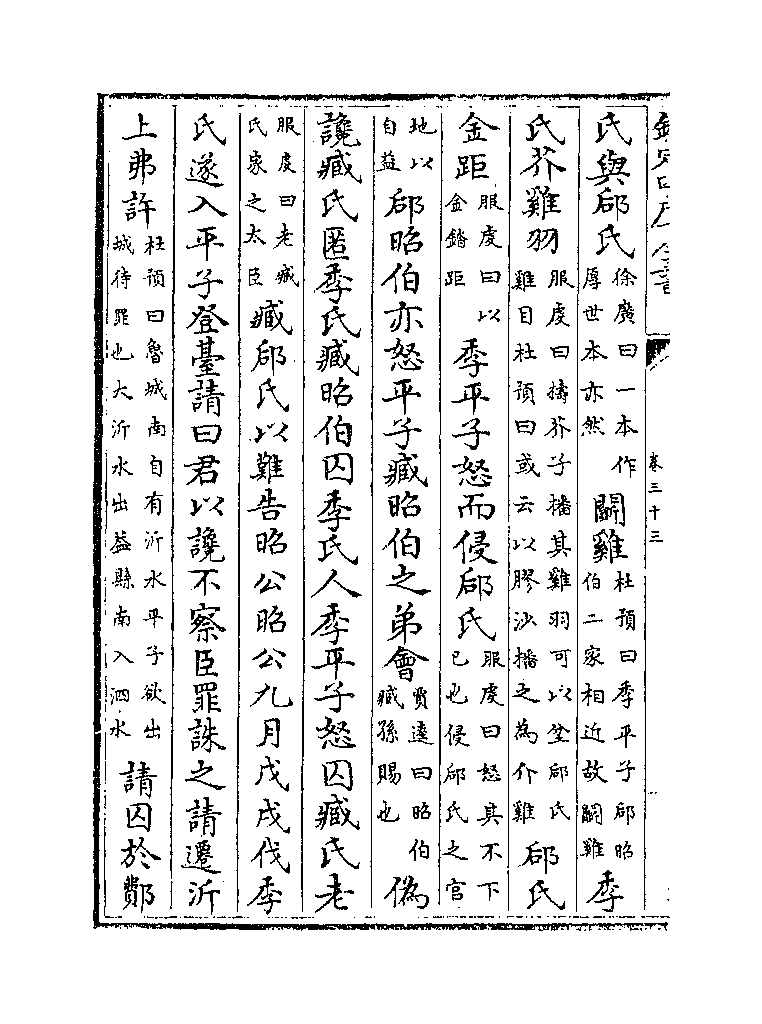 欽定四庫全書 卷三十三
氏與郈氏徐廣曰一本作厚世本亦然鬭雞杜預曰季平子郈昭伯二家相近故鬭雞季
氏芥雞羽服虔曰擣芥子播其雞羽可以坌郈氏雞目杜預曰或云以膠沙播之為介雞郈氏
金距服虔曰以金錔距季平子怒而侵郈氏服虔曰怒其不下已也侵郈氏之官
地以自益郈昭伯亦怒平子臧昭伯之弟會賈逵曰昭伯臧孫賜也偽
讒臧氏匿季氏臧昭伯囚季氏人季平子怒囚臧氏老
服虔曰老臧氏家之太臣臧郈氏以難告昭公昭公九月戊戌伐季
氏遂入平子登臺請曰君以讒不察臣罪誅之請遷沂
上弗許杜預曰魯城南自有沂水平子欲出城待罪也大沂水出益縣南入泗水請囚於鄪